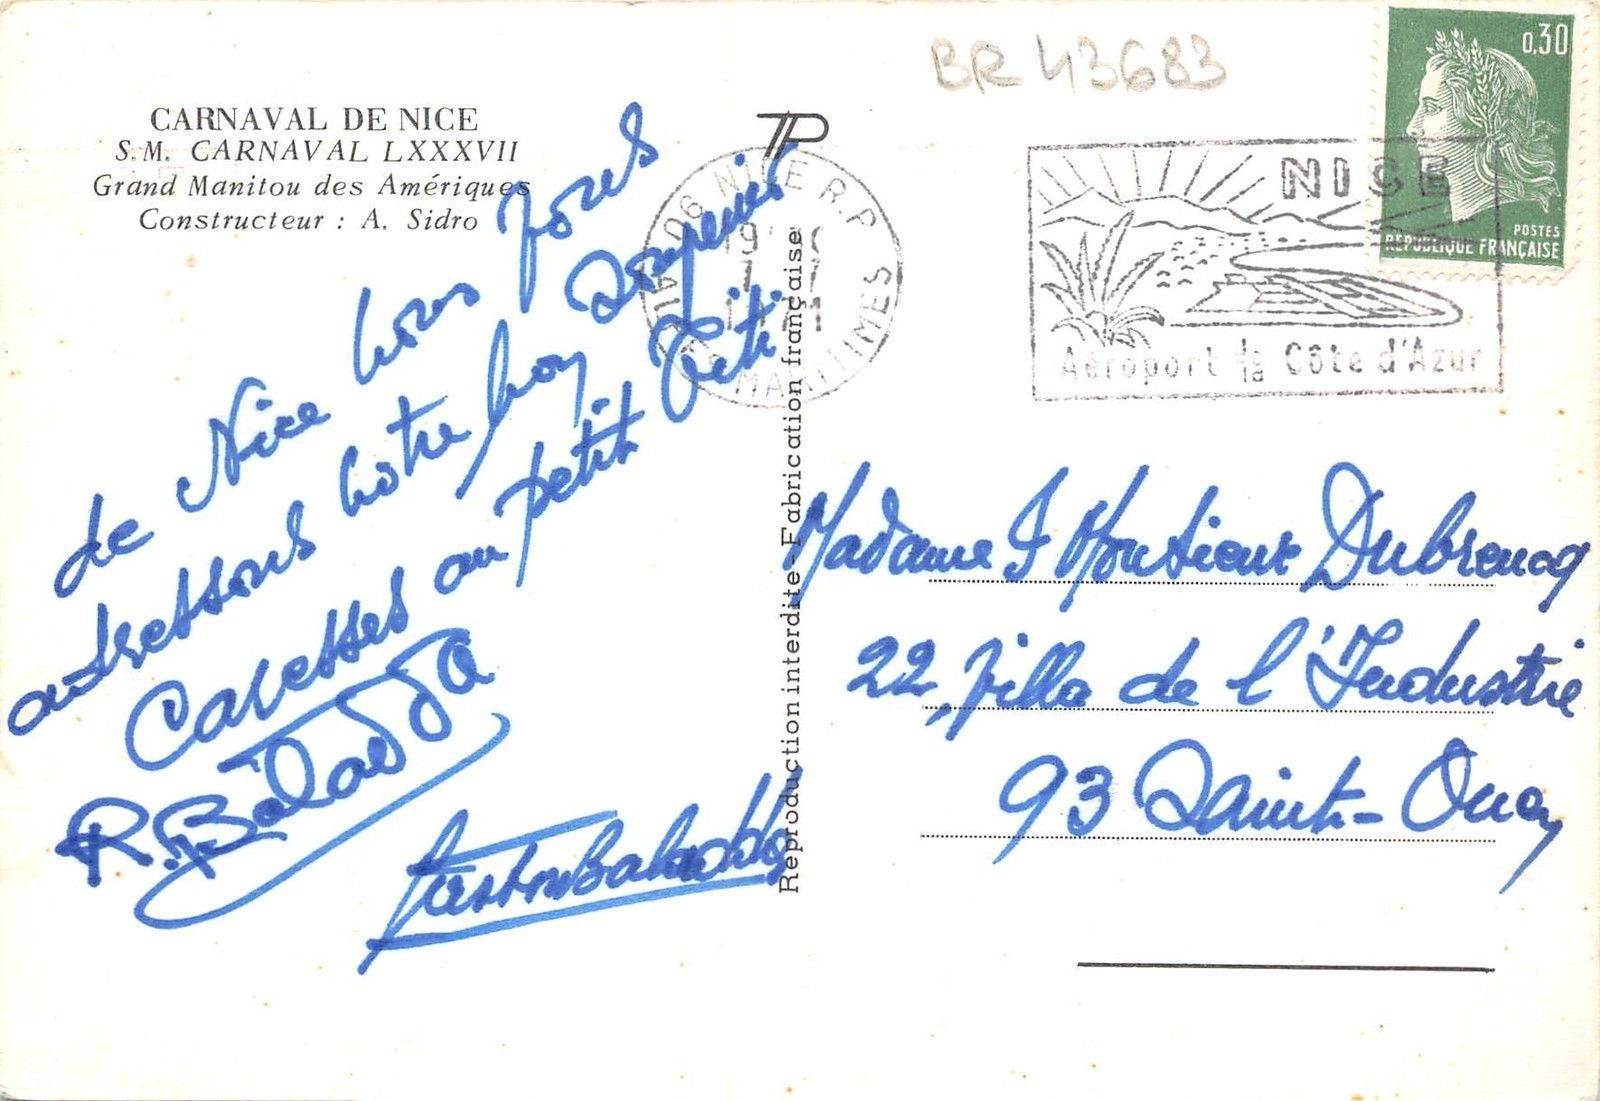 CARNAVAL DE NICE
S.M. CARNAVAL LXXXVII
Grand Manitou des Amériques
Constructeur : A. Sidro
de Nice nous vous
adressons notre bon souvenir
Caresses au petit Titi
R. Balada
TP
Reproduction interdite - Fabrication française
BR 43683
06 NICE R.P.
MARITIMES
NICE
Aéroport de la Côte d'Azur
0,30
POSTES
REPUBLIQUE FRANÇAISE
Madame & Monsieur Dubreucq
22, Villa de l'Industrie
93 Saint-Ouen